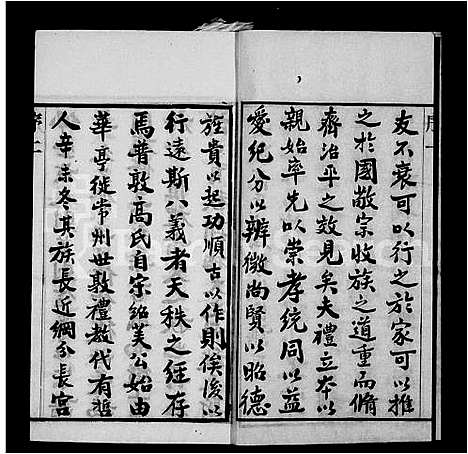 友不衰可以行之於家可以推
之於國敬宗收族之道重而脩
齊治平之效見矣夫禮立本以
親始率先以崇孝統同以益
愛紀分以辨微尚賢以昭德
旌貴以起功順古以作則俟後以
行遠斯八義者天秩之經存
焉晉敦高氏自宋紹芙公始由
華亭徙常州世敦禮教代有哲
人辛未冬其族長近綱分長宫
序二